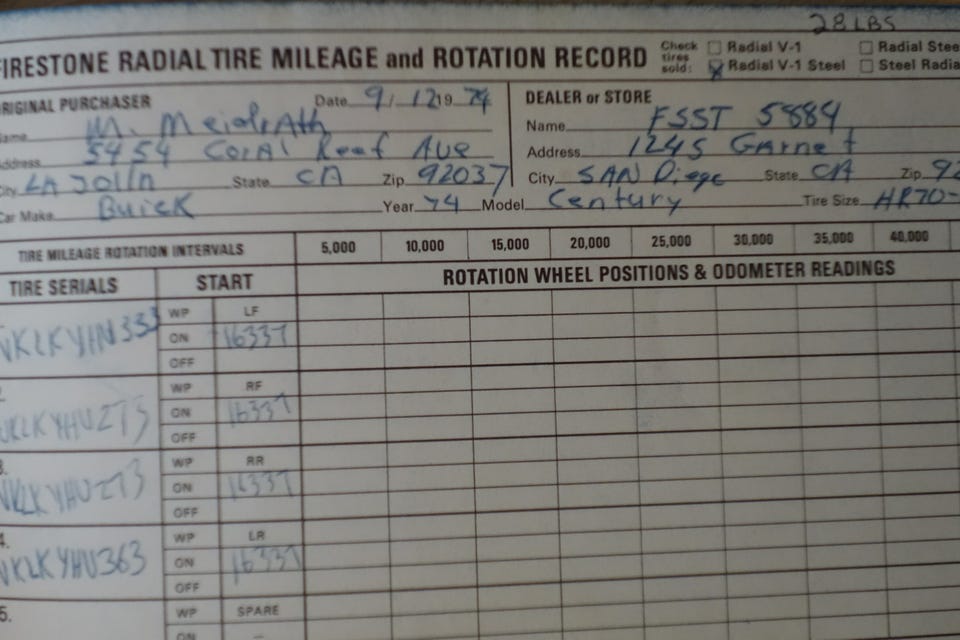 28 LBS
FIRESTONE RADIAL TIRE MILEAGE and ROTATION RECORD
Check tires sold: Radial V-1 Radial Stee
Radial V-1 Steel Steel Radia
ORIGINAL PURCHASER Date 9/12 19 74
Name M. Meidrath
Address 5454 Coral Reef Ave
City LA Jolla State CA Zip 92037
Car Make Buick Year 74 Model Century Tire Size HR70-
DEALER or STORE
Name FSST 5884
Address 1245 Garnet
City SAN Diego State CA Zip 92
TIRE MILEAGE ROTATION INTERVALS 5,000 10,000 15,000 20,000 25,000 30,000 35,000 40,000
TIRE SERIALS START ROTATION WHEEL POSITIONS & ODOMETER READINGS
WP LF
VKLKYHN333 ON 16337
OFF
WP RF
ON 16337
OFF
3. WP RR
VKLKYHU273 ON 16337
OFF
4. WP LR
VKLKYHU363 ON 16337
OFF
5. WP SPARE
ON –